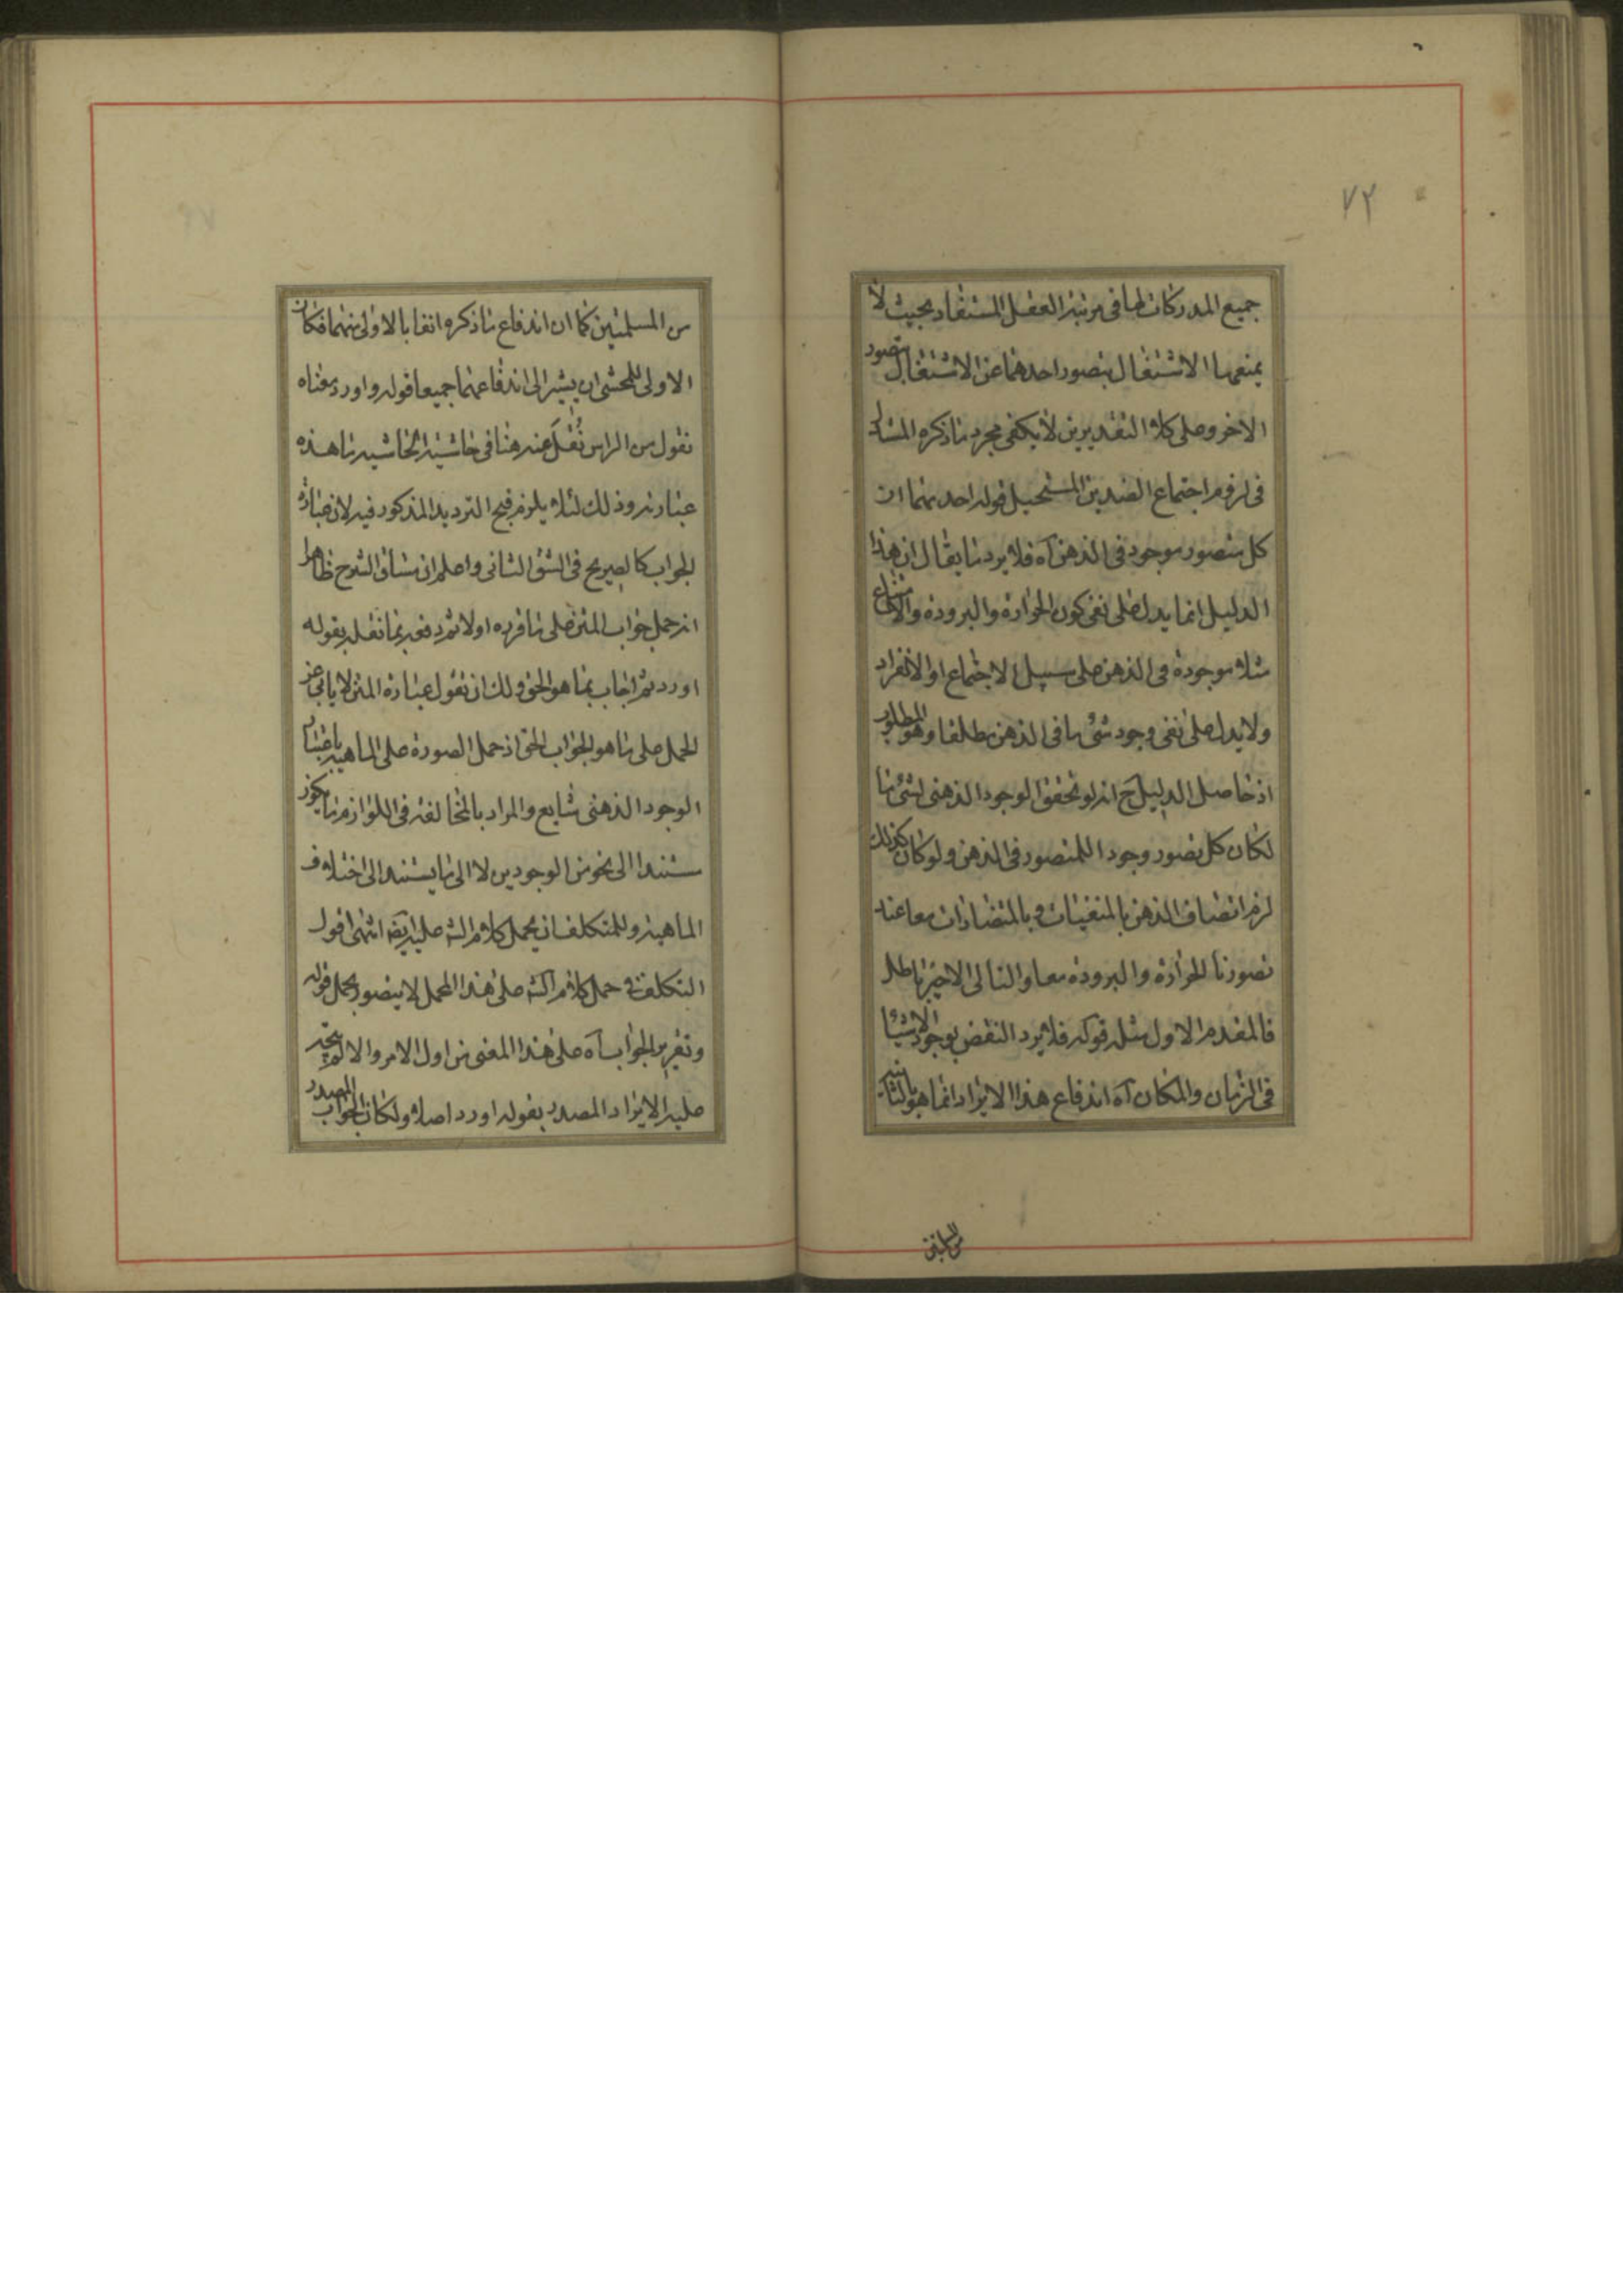 ٧٢
جميع المدركات لها فى مرتبة العقل المستفاد بحيث لا
يمنعها الاشتغال بتصور احدهما عن الاشتغال بتصور
الاخر وعلى كلا التقديرين لا يكفى مجرد ما ذكره
فى لزوم اجتماع الضدين المستحيل قوله احدهما ان
كل متصور موجود فى الذهن آه فلا يرد ما يقال ان هذا
الدليل انما يدل على نفى كون الحرارة والبرودة والامتناع
مثلا موجودة فى الذهن على سبيل الاجتماع او الانفراد
ولا يدل على نفى وجود شئ ما فى الذهن مطلقا وهو المطلوب
اذ حاصل الدليل ح انه لو تحقق الوجود الذهنى لشئ ما
لكان كل تصور وجودا للمتصور فى الذهن ولو كان كذلك
لزم اتصاف الذهن بالمنفيات و بالمتضادات معا عند
تصورنا الحرارة والبرودة معا والتالى الاخير باطل
فالمقدم الاول مثله قوله فلا يرد النقض بوجود الاشياء
فى الزمان والمكان آه اندفاع هذا الايراد انما هو بالثانية
من المسلمتين
من المسلمتين كما ان اندفاع ما ذكره انفا بالاولى منهما فكان
الاولى للمحشى ان يشير الى اندفاعهما جميعا قوله واورد معناه
نقول من الراس نُقلَ عنه هنا فى حاشية الحاشية ما هذه
عبارته وذلك لئلا يلزم قبح الترديد المذكور فيه لان عبارة
الجواب كالصريح فى الشق الثانى واعلم ان مساق الشرح ظاهرا
انه حمل جواب المتن على ما قرره اولا ثم دفعه بما نقله بقوله
اورد ثم اجاب بما هو الحق ولك ان تقول عبارة المتن لا يابى عن
الحمل على ما هو الجواب الحق اذ حمل الصورة على الماهية باعتبار
الوجود الذهنى شايع والمراد بالمخالفة فى اللوازم ما يكون
مستندا الى نحو من الوجودين لا الى ما يستند الى اختلاف
الماهية وللمتكلف ان يحمل كلام الش عليه ايضه انتهى اقول
التكلف فى حمل كلام الش على هذا المحمل لا يتصور بحمل قوله
وتقرير الجواب آه على هذا المعنى من اول الامر والا لم يتجه
عليه الايراد المصدر بقوله اورد اصلا ولكان الجواب المصدر